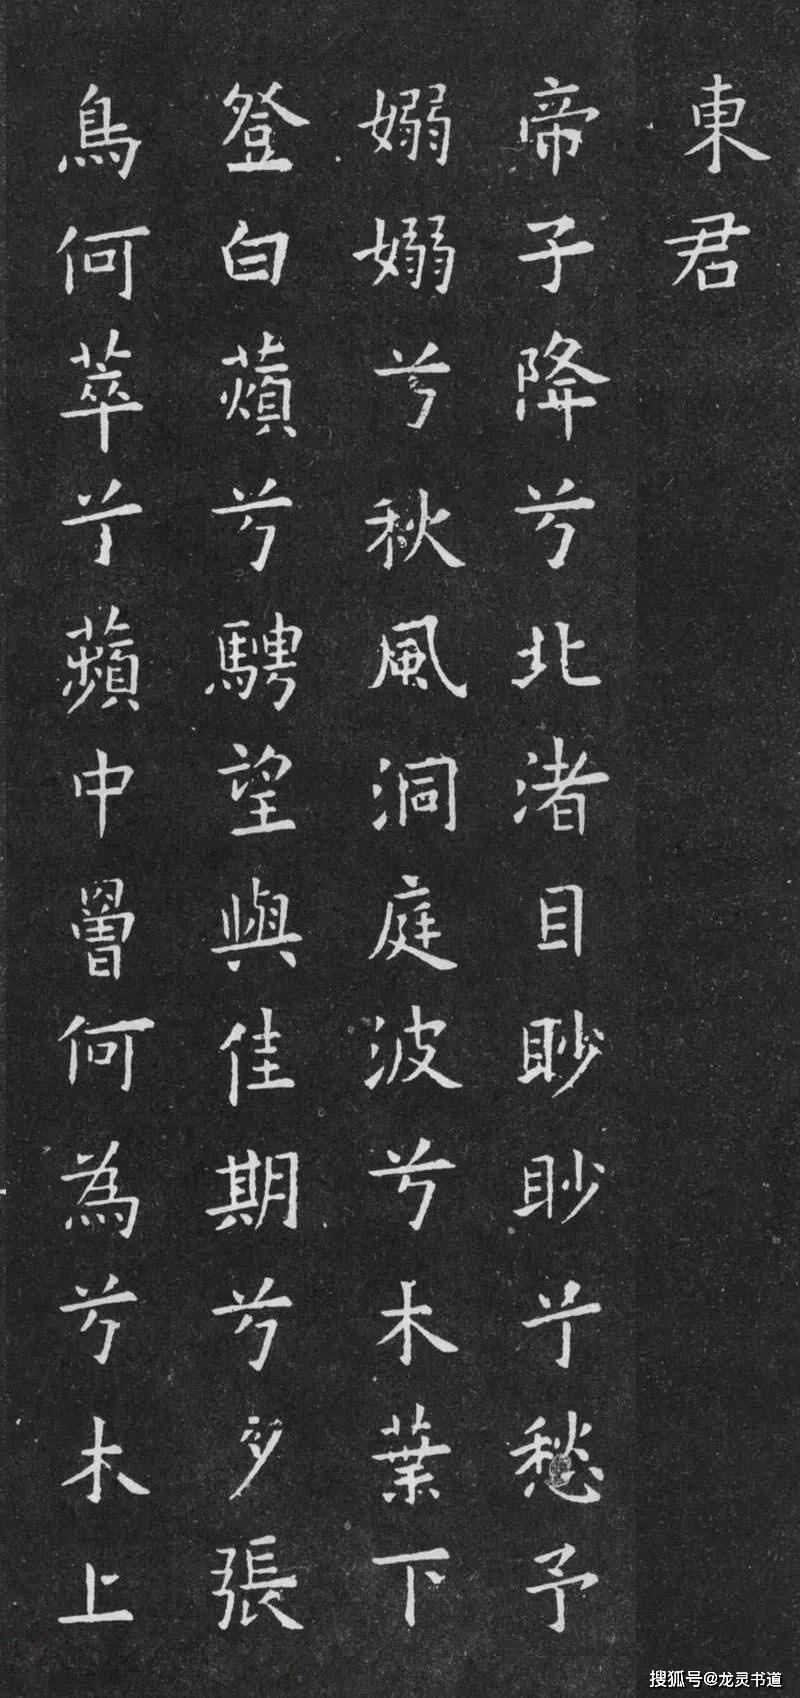 東君
帝子降兮北渚目眇眇兮愁予
嫋嫋兮秋風洞庭波兮木葉下
登白薠兮騁望與佳期兮夕張
鳥何萃兮蘋中罾何為兮木上
搜狐号@龙灵书道